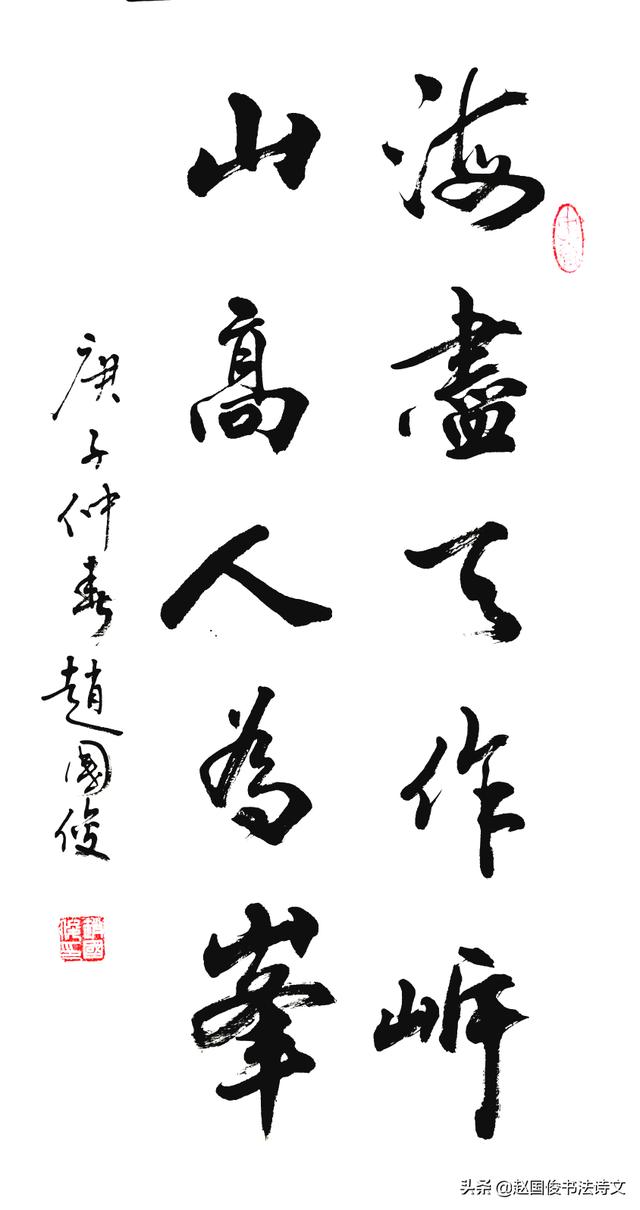 海盡天作岸
山高人為峯
庚子仲春趙國俊
趙國俊印
头条 @赵国俊书法诗文